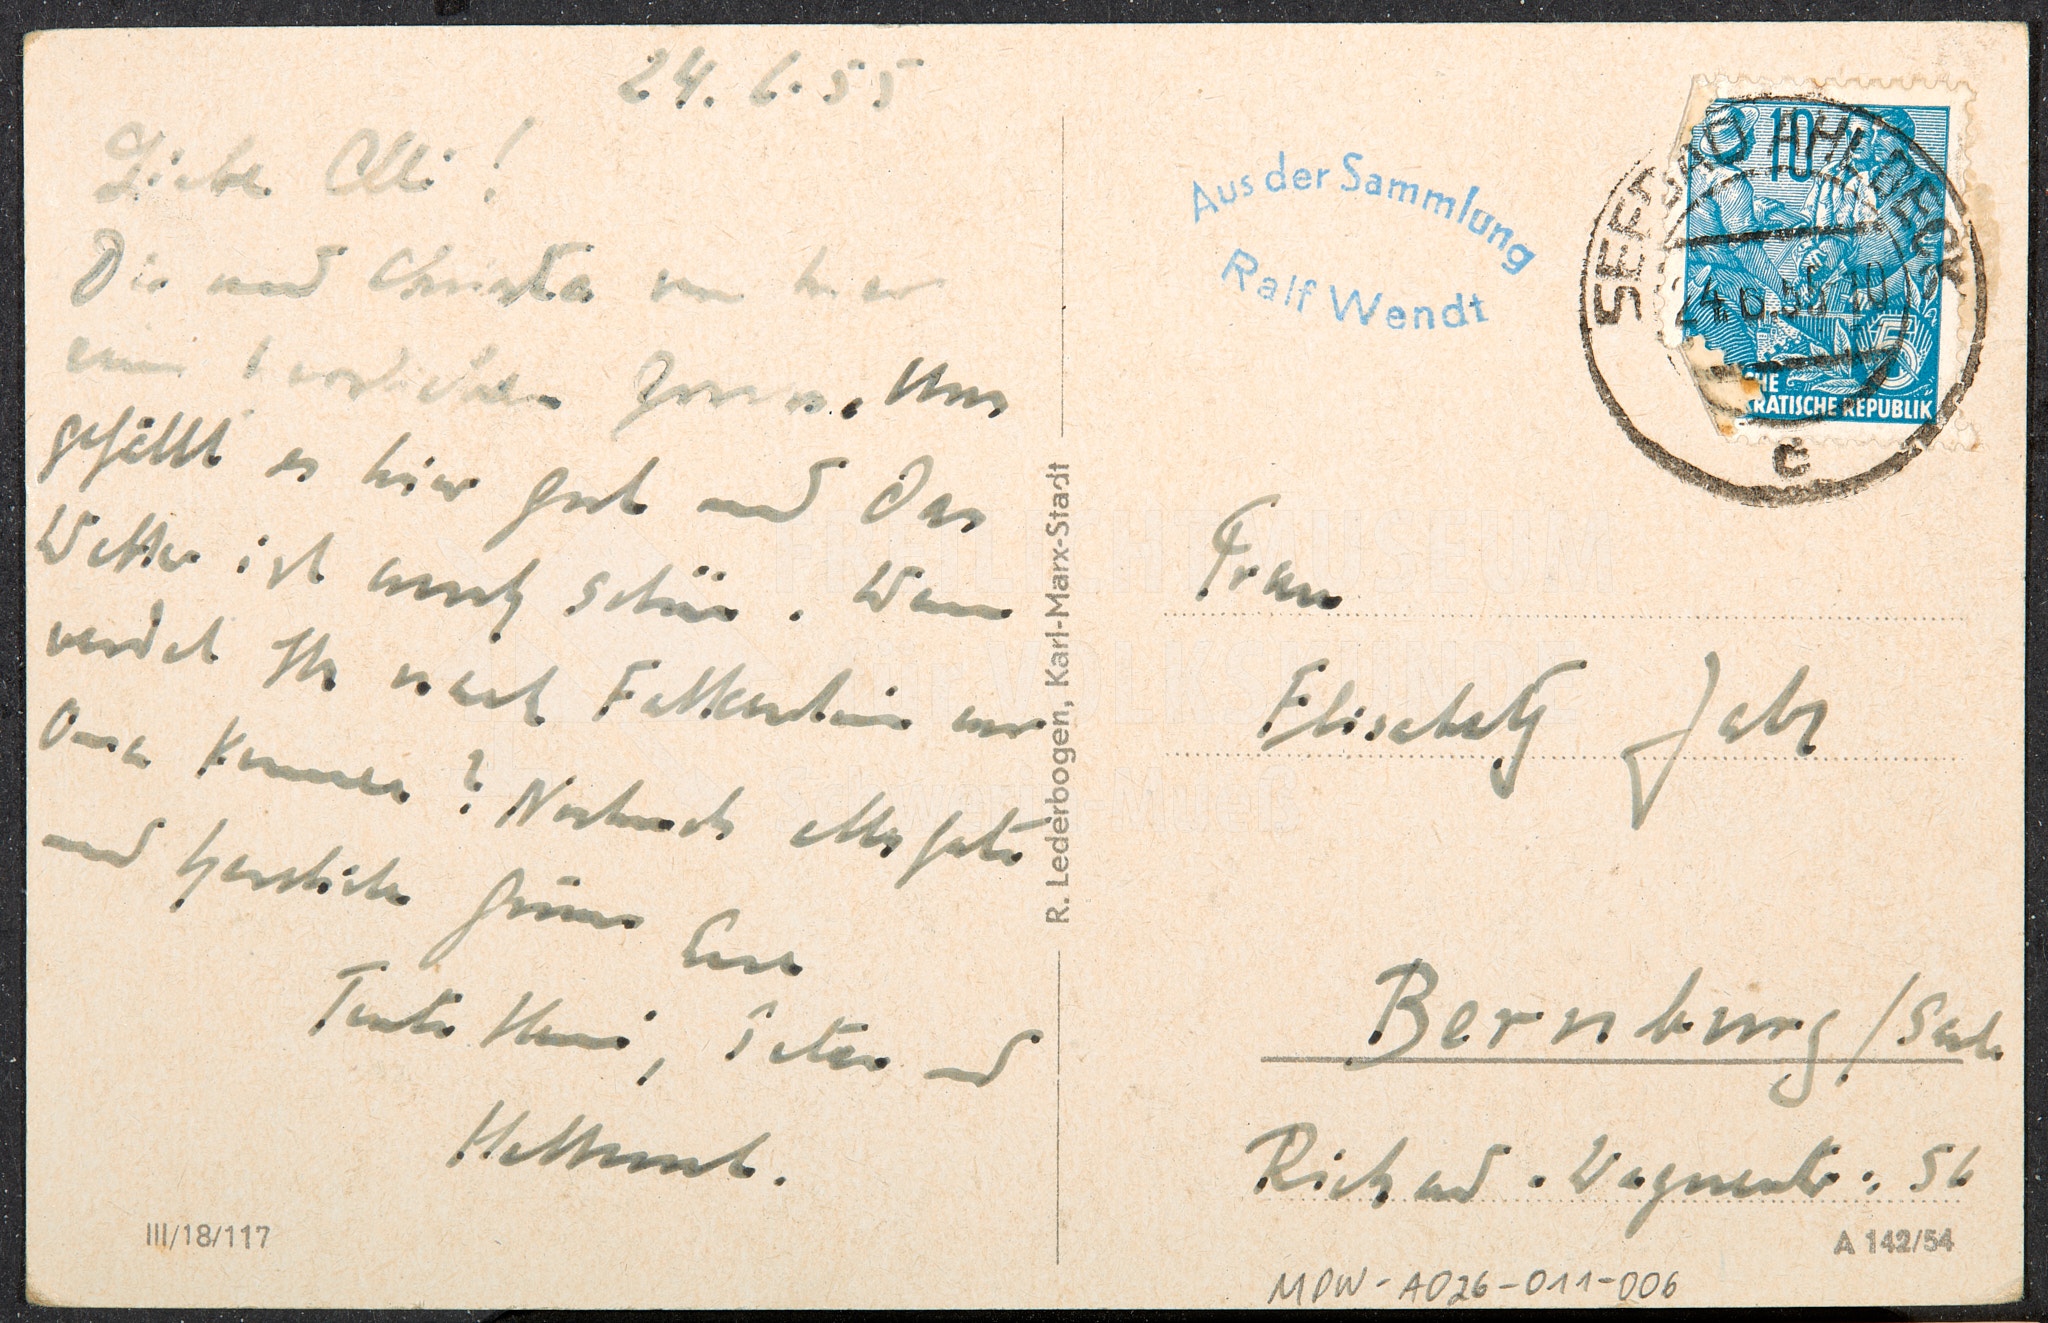 24. 6. 55
Liebe Elli!
Dir und Christa von hier
einen herzlichen Gruss. Uns
gefällt es hier gut und das
Wetter ist auch schön. Wann
werdet Ihr nach Falkenstein zur
Oma kommen? Nochmals alles Gute
und herzliche Grüsse Eure
Tante Hanni, Peter und
Hellmut.
III/18/117
R. Lederbogen, Karl-Marx-Stadt
Aus der Sammlung
Ralf Wendt
SEEBAD AHLBECK
24.6.55 10
c
10
5
CHE
KRATISCHE REPUBLIK
FREILICHTMUSEUM
für VOLKSKUNDE
Schwerin-Mueß
Frau
Elisabeth
Bernburg/Saale
Richard-Wagnerstr. 56
A 142/54
MPW-A026-011-006